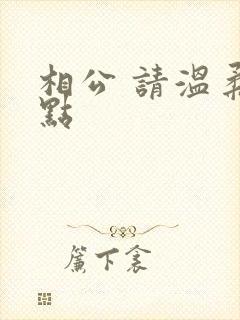 相公 請溫柔
點
簾下衾